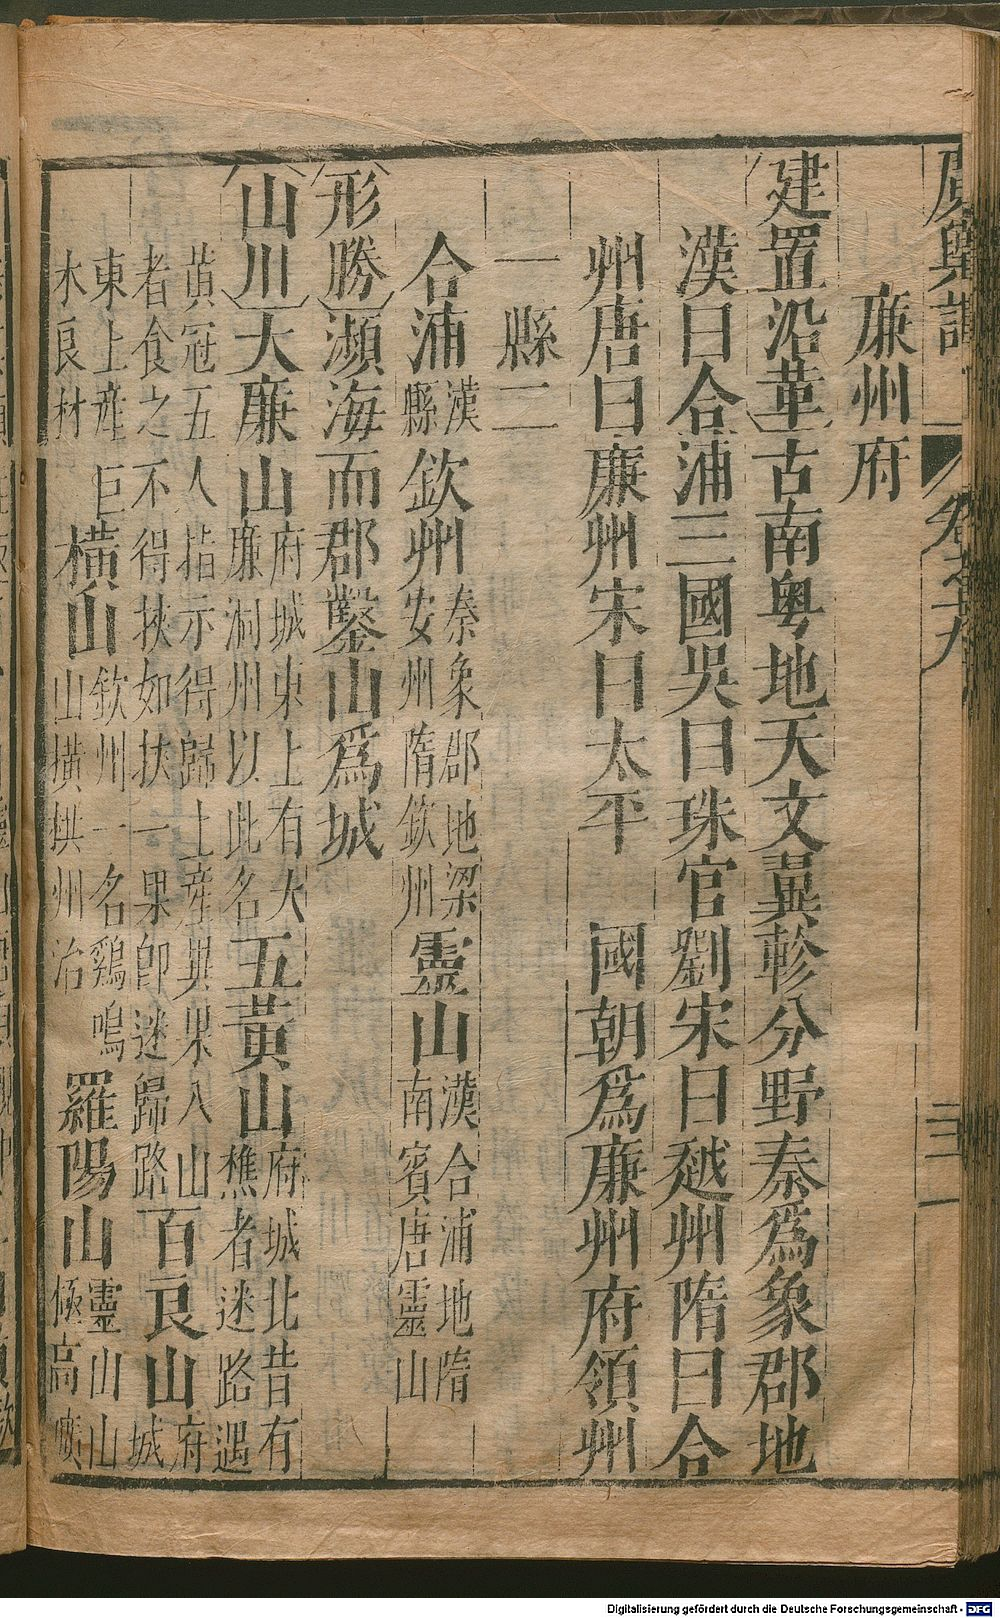 廉州府
建置沿革古南粤地天文翼軫分野秦爲象郡地
漢曰合浦三國吳曰珠官劉宋曰越州隋曰合
州唐曰廉州宋曰太平 國朝爲廉州府領州
一縣二
合浦漢縣欽州秦象郡地梁安州隋欽州靈山漢合浦地隋南賓唐靈山
形勝瀕海而郡鑿山爲城
山川大廉山府城東上有大廉洞州以此名五黃山府城北昔有樵者迷路遇
黃冠五人指示得歸土產異果入山者食之不得挾如挾一果卽迷歸路百良山府城
東上產巨木良材橫山欽州一名鷄鳴山橫拱州治羅陽山靈山山極高廣
Digitalisierung gefördert durch die Deutsche Forschungsgemeinschaft - DFG